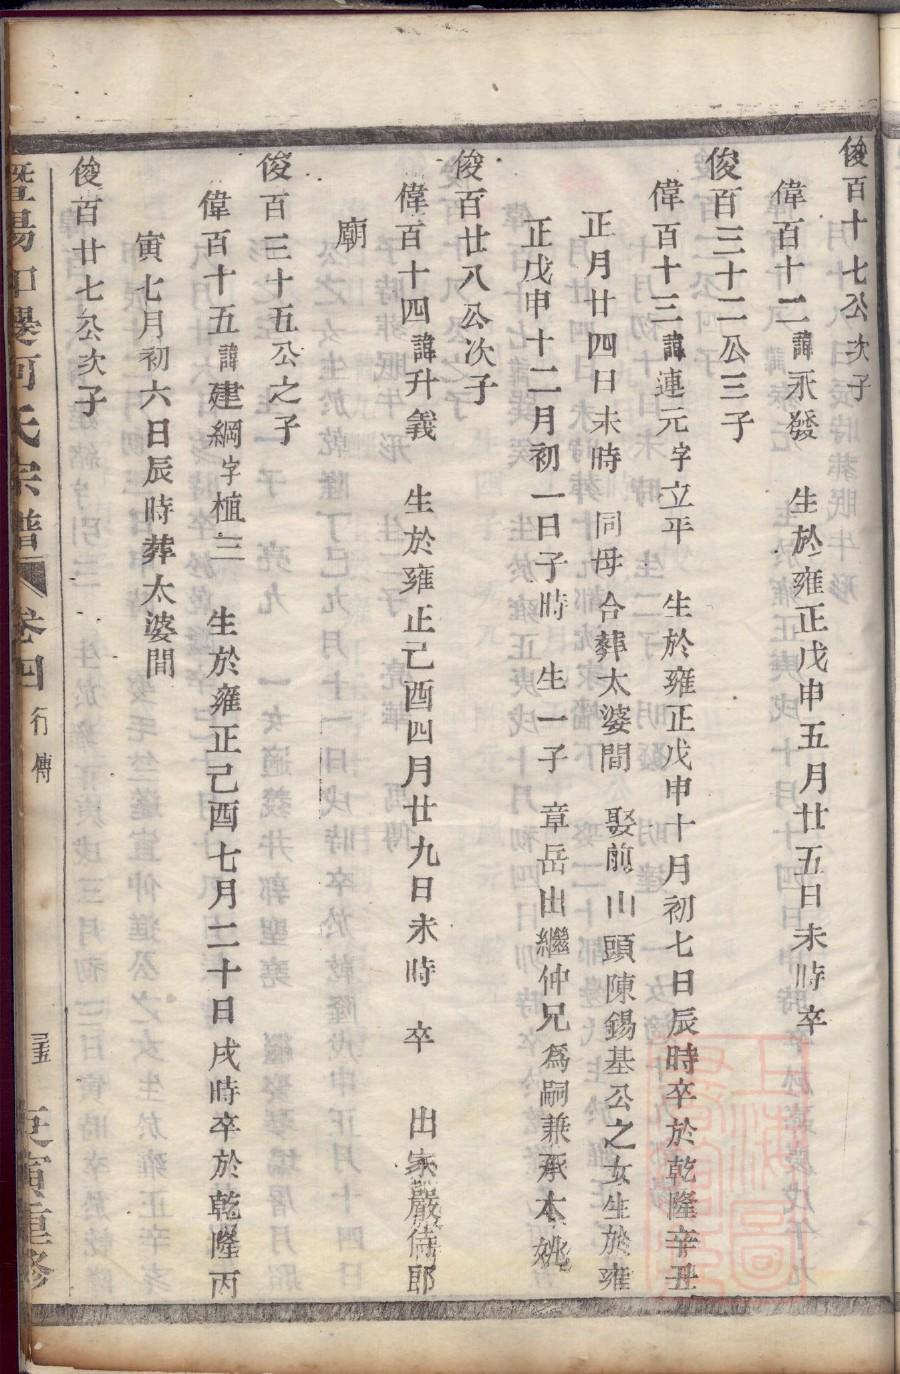 俊百十七公次子
偉百十二諱承發　生於雍正戊申五月廿五日未時卒
俊百三十二公三子
偉百十三諱連元字立平　生於雍正戊申十月初七日辰時卒於乾隆辛丑
正月廿四日未時　同母合葬太婆間　娶前山頭陳錫基公之女生於雍
正戊申十二月初一日子時　生一子　章岳出繼仲兄為嗣兼承本祧
俊百廿八公次子
偉百十四諱升義　生於雍正己酉四月廿九日未時　卒　出家嚴侍郎
廟
俊百三十五公之子
偉百十五諱建綱字植三　生於雍正己酉七月二十日戌時卒於乾隆丙
寅七月初六日辰時葬太婆間
俊百廿七公次子
暨陽 何氏宗譜 卷四 行傳 庚寅重修